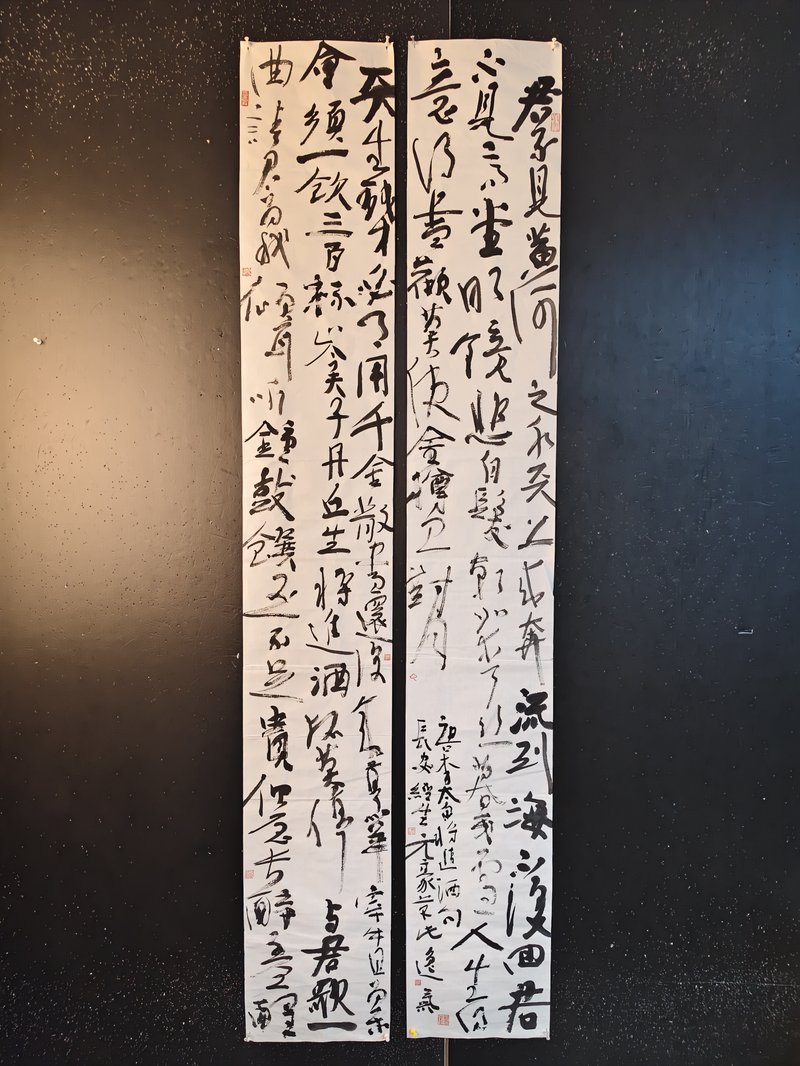 君不見黃河之水天上來奔流到海不復回君
不見高堂明鏡悲白髮朝如青絲暮成雪人生得
意須盡歡莫使金樽空對月
唐李太白將進酒句
長安經生
逸氣
天生我才必有用千金散盡還復來烹羊宰牛且為樂
會須一飲三百杯岑夫子丹丘生將進酒杯莫停与君歌一
曲請君為我傾耳听鐘鼓饌玉不足貴但願長醉不願醒